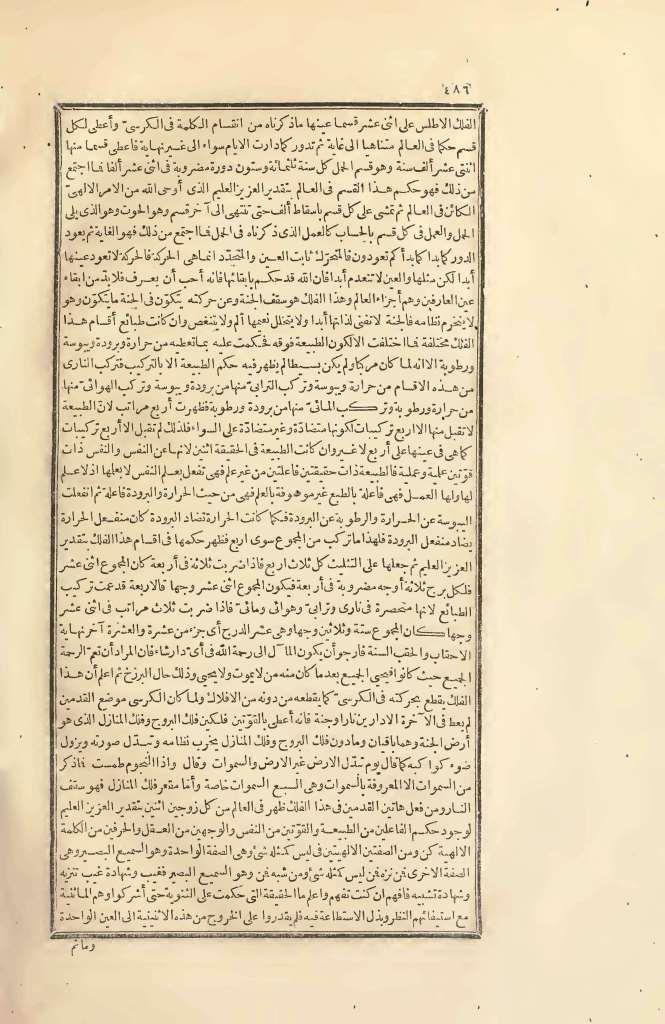 ٤٨٦
الفلك الاطلس على اثنى عشر قسما عينها ماذكرناه من انقسام الكلمة فى الكرسىّ وأعطى لكل
قسم حكما فى العالم متناهيا الى غاية ثم تدور كمادارت الايام سواء الى غير نهاية فاعطى قسما منها
اثنتى عشر ألف سنة وهو قسم الحمل كل سنة ثلثمائة وستون دورة مضروبة فى اثنى عشر ألفا فما اجتمع
من ذلك فهو حكم هذا القسم فى العالم بتقدير العزيز العليم الذى أوحى الله من الامر الالهىّ
الكائن فى العالم ثم تمشى على كل قسم باسقاط ألف حتى تنتهى الى آخر قسم وهو الحوت وهو الذى يلى
الحمل والعمل فى كل قسم بالحساب كالعمل الذى ذكرناه فى الحمل فما اجتمع من ذلك فهو الغاية ثم يعود
الدور كما بدا كما بدأكم تعودون فالمتحرّك ثابت العين والمتجدّد انماهى الحركة فالحركة لاتعود عينها
أبدا لكن مثلها والعين لاتنعدم أبدا فان الله قد حكم بابقائها فانه أحب أن يعرف فلابدّ من ابقاء
عين العارفين وهم أجزاء العالم وهذا الفلك هو سقف الجنة وعن حركته يتكوّن فى الجنة مايتكوّن وهو
لاينخرم نظامه فالجنة لاتفنى لذاتها أبدا ولايتخلل نعيمها ألم ولايتنغص وان كانت طبائع أقسام هذا
الفلك مختلفة فما اختلفت الالكون الطبيعة فوقه فحكمت عليه بماتعطيه من حرارة وبرودة ويبوسة
ورطوبة الاانه لما كان مركبا ولم يكن بسيطا لم يظهر فيه حكم الطبيعة الا بالتركيب فتركب النارى
من هذه الاقسام من حرارة ويبوسة وتركب الترابىّ منها من برودة ويبوسة وتركب الهوائى منها
من حرارة ورطوبة وتركب المائىّ منها من برودة ورطوبة فظهرت أربع مراتب لانّ الطبيعة
لاتقبل منها الااربع تركيبات لكونها متضادّة وغير متضادّة على السواء فلذلك لم تقبل الاأربع تركيبات
كماهى فى عينها على أربع لاغير وان كانت الطبيعة فى الحقيقة اثنين لانها عن النفس والنفس ذات
قوّتين علمية وعملية فالطبيعة ذات حقيقتين فاعلتين من غير علم فهى تفعل بعلم النفس لابعلمها اذلاعلم
لها ولها العمل فهى فاعلة بالطبع غير موهوفة بالعلم فهى من حيث الحرارة والبرودة فاعلة ثم انفعلت
اليبوسة عن الحرارة والرطوبة عن البرودة فكما كانت الحرارة تضاد البرودة كان منفعل الحرارة
يضاد منفعل البرودة فلهذا ماتركب من المجموع سوى اربع فظهر حكمها فى اقسام هذا الفلك بتقدير
العزيز العليم ثم جعلها على التثليث كل ثلاث اربع فاذا ضربت ثلاثة فى أربعة كان المجموع اثنى عشر
فلكل برج ثلاثة أوجه مضروبة فى أربعة فيكون المجموع اثنى عشر وجها فالاربعة قد عمت تركيب
الطبائع لانها منحصرة فى نارى وترابىّ وهوائى ومائىّ فاذا ضربت ثلاث مراتب فى اثنى عشر
وجها كان المجموع ستة وثلاثين وجها وهى عشر الدرج أى جزء من عشرة والعشرة آخر نهاية
الاحقاب والحقب السنة فارجو أن يكون المآل الى رحمة الله فى أىّ دارشاء فان المراد أن تعم الرحمة
الجميع حيث كانوا فيحيى الجميع بعدما كان منه من لايموت ولايحيى وذلك حال البرزخ ثم اعلم أن هذا
الفلك يقطع بحركته فى الكرسىّ كمايقطعه من دونه من الافلاك ولما كان الكرسى موضع القدمين
لم يعط فى الآخرة الادارين نارا وجنة فانه أعطى بالقوّتين فلكين فلك البروج وفلك المنازل الذى هو
أرض الجنة وهما باقيان ومادون فلك البروج وفلك المنازل يخرب نظامه وتبدّل صورته ويزول
ضوء كواكبه كماقال يوم تبدّل الارض غير الارض والسموات وقال واذا النجوم طمست فماذكر
من السموات الاالمعروفة بالسموات وهى السبع السموات خاصة وأمّا مقعر فلك المنازل فهو سقف
النار ومن فعل هاتين القدمين فى هذا الفلك ظهر فى العالم من كل زوجين اثنين بتقدير العزيز العليم
لوجود حكم الفاعلين من الطبيعة والقوّتين من النفس والوجهين من العقل والحرفين من الكلمة
الالهية كن ومن الصفتين الالهيتين فى ليس كمثله شئ وهى الصفة الواحدة وهو السميع البصير وهى
الصفة الاخرى فمن نزه فمن ليس كمثله شئ ومن شبه فمن وهو السميع البصير فغيب وشهادة غيب تنزيه
وشهادة تشبيه فافهم ان كنت تفهم واعلم ما الحقيقة التى حكمت على الثنوية حتى أشركوا وهم المانية
مع استيفائهم النظر وبذل الاستطاعة فيه فلم يقدروا على الخروج من هذه الاثنينية الى العين الواحدة
وماثم